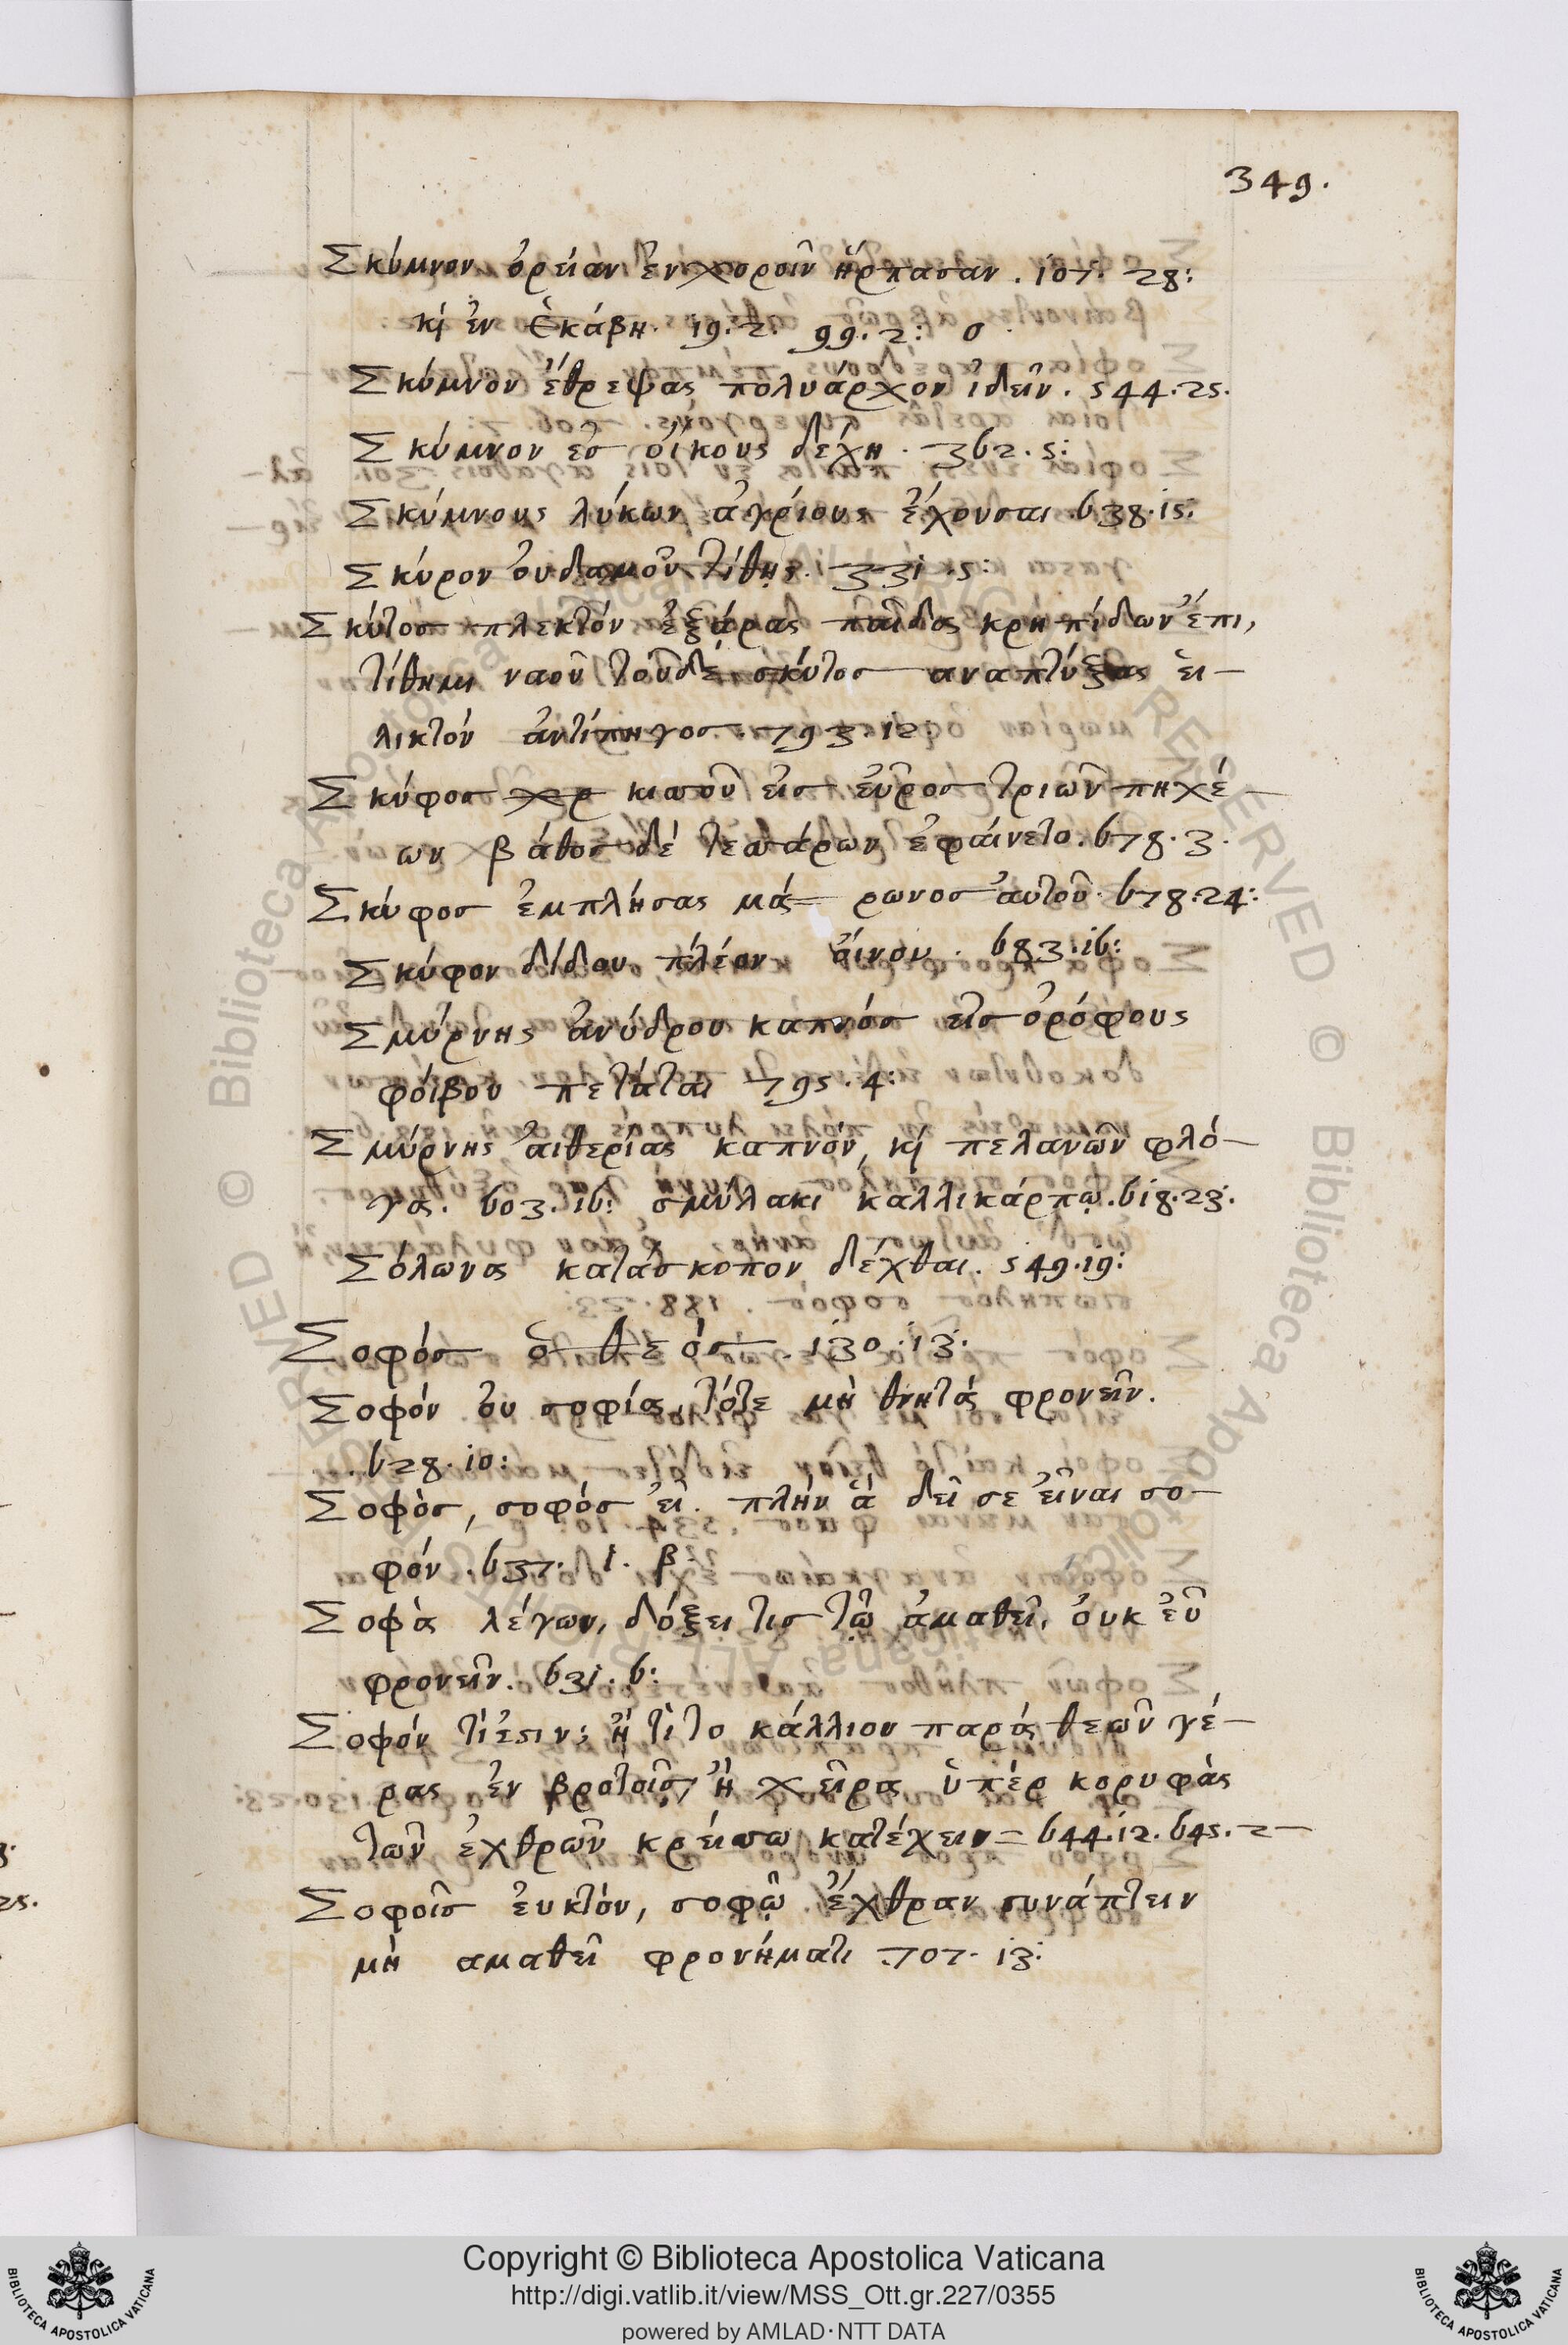 349.
Σκύμνον ὀρείαν ἐν χοροῖν ἥρπασαν. 107. 28:
κὶ ἐν Ἑκάβη. 19. 2. 99. 2: σ
Σκύμνον ἔθρεψας πολυάρχον ἰδεῖν. 544. 25.
Σκύμνον ἐσ οἴκους δέχη. 362. 5:
Σκύμνους λύκων ἀγρίους ἔχουσαι. 638. 15.
Σκύρον ὀυδαμοῦ τίθης. 331. 5:
Σκύτοσ πλεκτόν ἐξάρας παῖδας κρηπίδων ἔπι,
τίθημι ναοῦ τοῦδέ σκύτος αναπτύξας ἑι-
λικτόν ἀντίπηγοσ. 793. 12
Σκύφοσ κισσοῦ εἰσ εὖρος τριῶν πηχέ-
ων βάθοσ δέ τεσσάρων ἐφαίνετο. 678. 3.
Σκύφοσ ἐμπλήσας μά= ρωνοσ ἀυτοῦ. 678. 24:
Σκύφον δίδου πλέον οἴνου. 683. 16:
Σμύρνης ἀνύδρου καπνόσ εἰσ ὀρόφους
φοίβου πετάται 795. 4:
Σμύρνης ἀιθερίας καπνόν, κὶ πελανῶν φλό-
γα. 603. 16: σμύλακι καλλικάρπῳ. 618. 23.
Σόλωνα κατάσκοπον δέχθαι. 549. 19:
Σοφόσ ὁ θεόσ. 130. 13:
Σοφόν ὀυ σοφία, τότε μὴ θνητά φρονεῖν.
. 628. 10:
Σοφὸσ, σοφόσ εἶ. πλήν ἅ δεῖ σε εἶναι σο-
φόν. 637. 1. β:
Σοφὰ λέγων, δόξει τισ τῷ ἀμαθεῖ, ὀυκ εὖ
φρονεῖν. 631. 6:
Σοφόν τἰ ἐστιν; ἤ τὶ το κάλλιον παρά θεῶν γέ-
ρας ἐν βροτοῖσ, ἤ χεῖρα ὑπὲρ κορυφὰς
τῶν ἐχθρῶν κρείσσω κατέχειν= 644. 12. 645. 2-
Σοφοῖσ ἐυκτὸν, σοφῷ ἔχθραν συνάπτειν
μὴ αμαθεῖ φρονήματι 707. 13:
25.
Copyright © Biblioteca Apostolica Vaticana
http://digi.vatlib.it/view/MSS_Ott.gr.227/0355
powered by AMLAD·NTT DATA